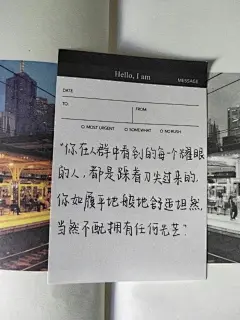 Hello, I am
MESSAGE
DATE
TO:
FROM:
O MOST URGENT O SOMEWHAT O NO RUSH
“你在人群中看到的每个耀眼
的人，都是踩着刀尖过来的，
你如履平地般地舒适坦然，
当然不配拥有任何光芒”